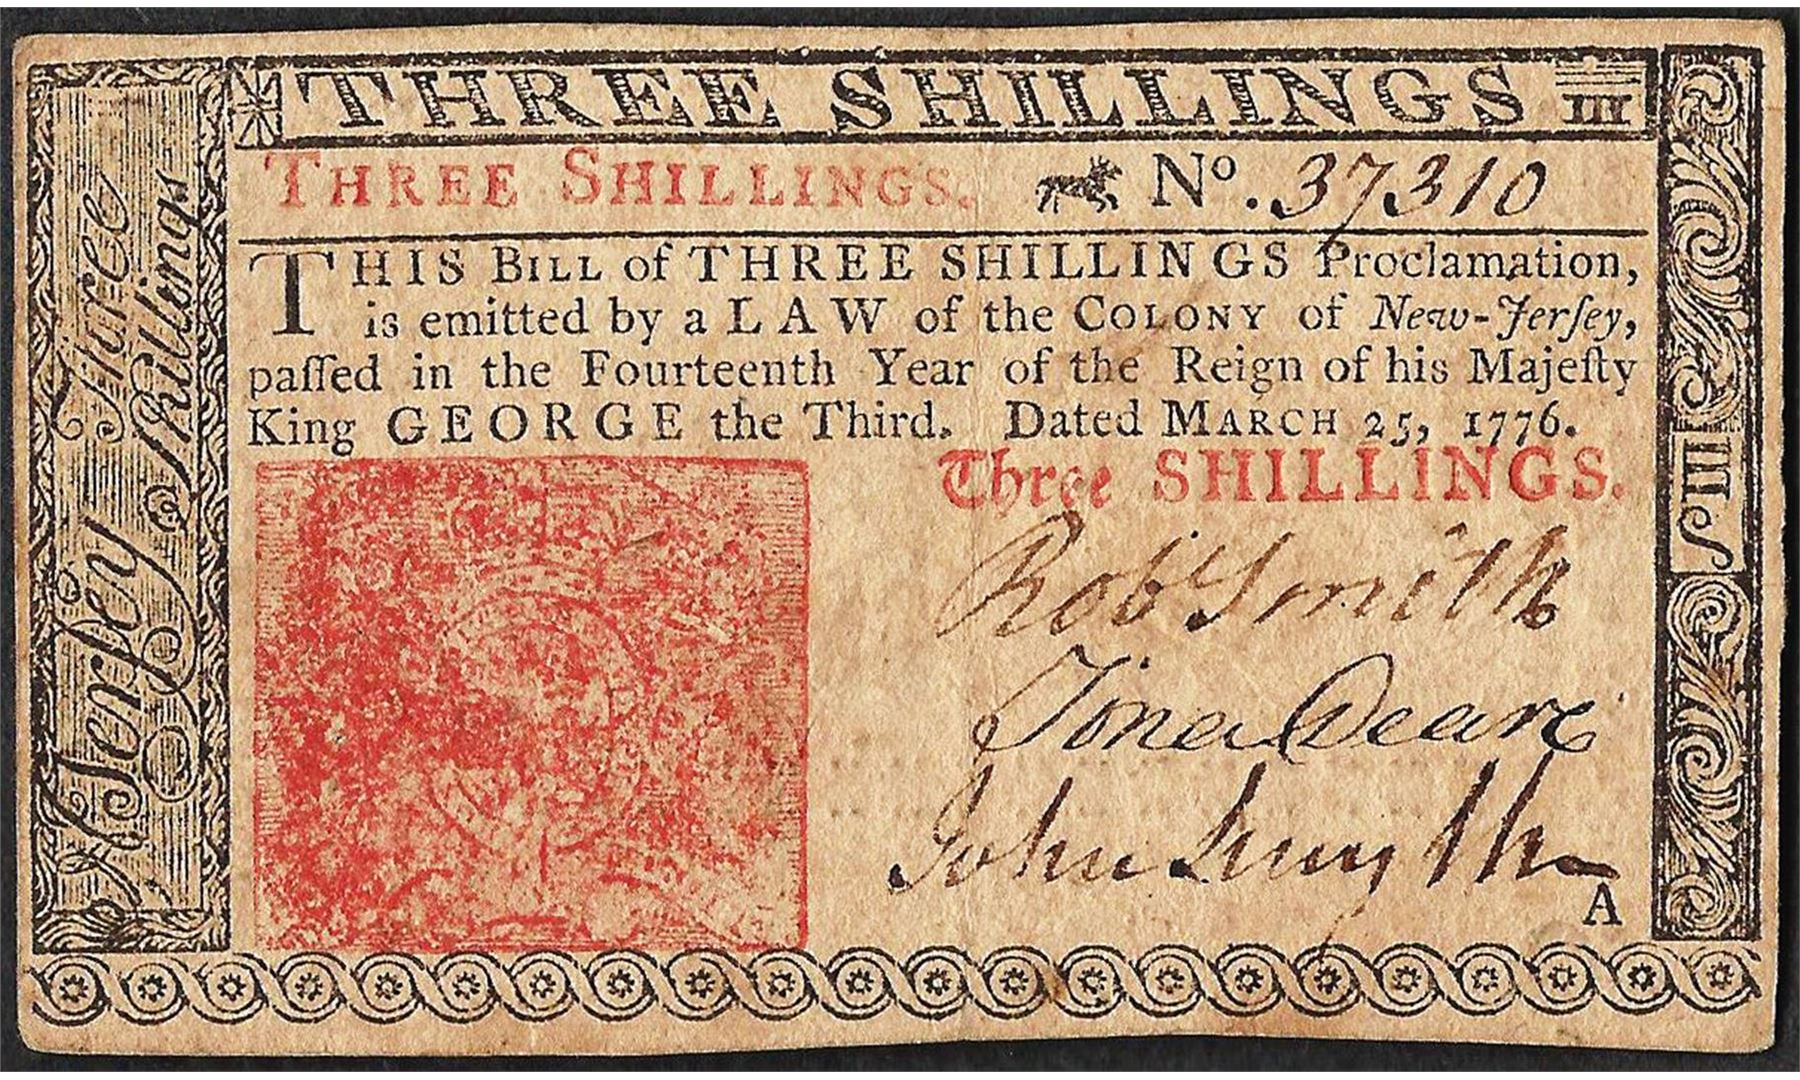 THREE SHILLINGS III
THREE SHILLINGS. No. 37310
THIS BILL of THREE SHILLINGS Proclamation,
is emitted by a LAW of the COLONY of New-Jerſey,
paſſed in the Fourteenth Year of the Reign of his Majeſty
King GEORGE the Third. Dated MARCH 25, 1776.
Three SHILLINGS.
Robt Smith
Jona Deare
John Smyth
A
Three
Shillings
N Jerſey
III S